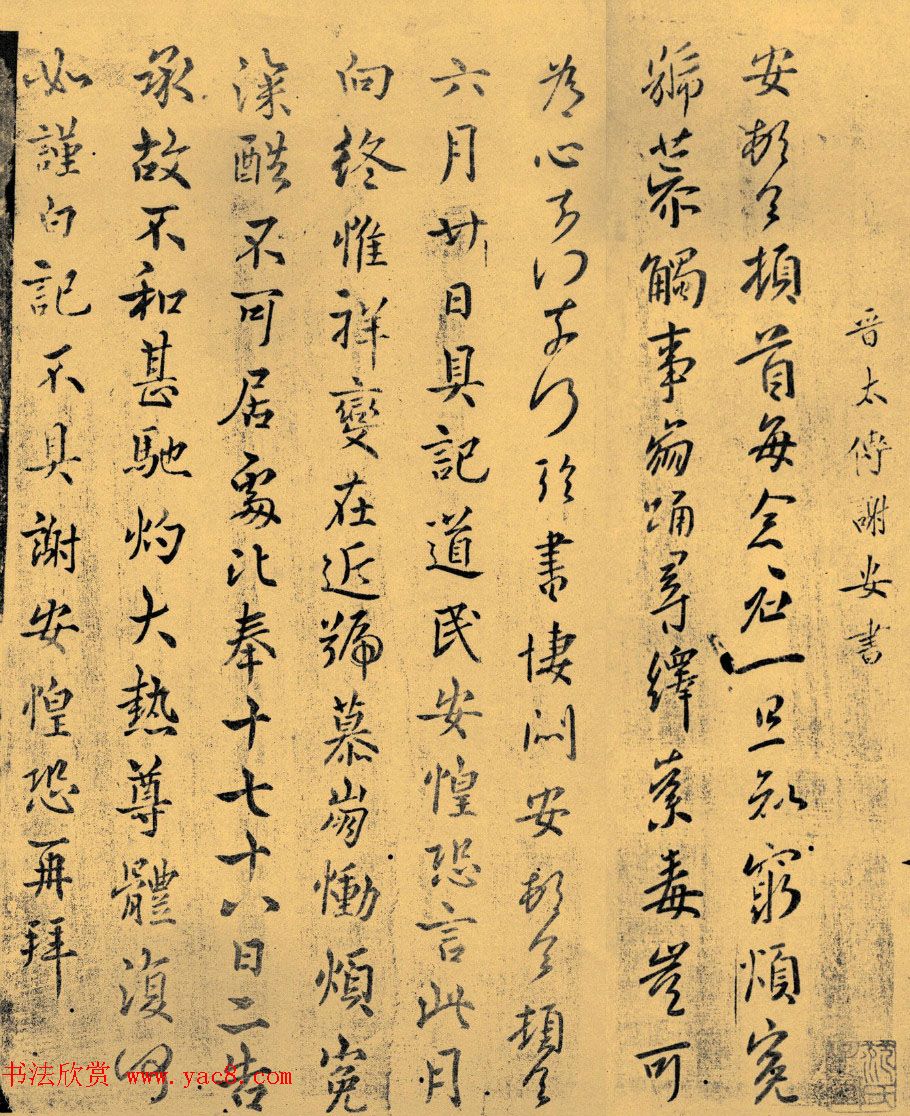 晋太傅謝安書
安頓首頓首每念君一旦知窮煩冤
號慕觸事崩踊尋繹荼毒豈可
為心奈何奈何臨書悽悶安頓首頓首
六月廿日具記道民安惶恐言此月
向終惟祥變在近號慕崩慟煩冤
深酷不可居處比奉十七十八日二告
承故不和甚馳灼大熱尊體復何
如謹白記不具謝安惶恐再拜
书法欣赏 www.yac8.com